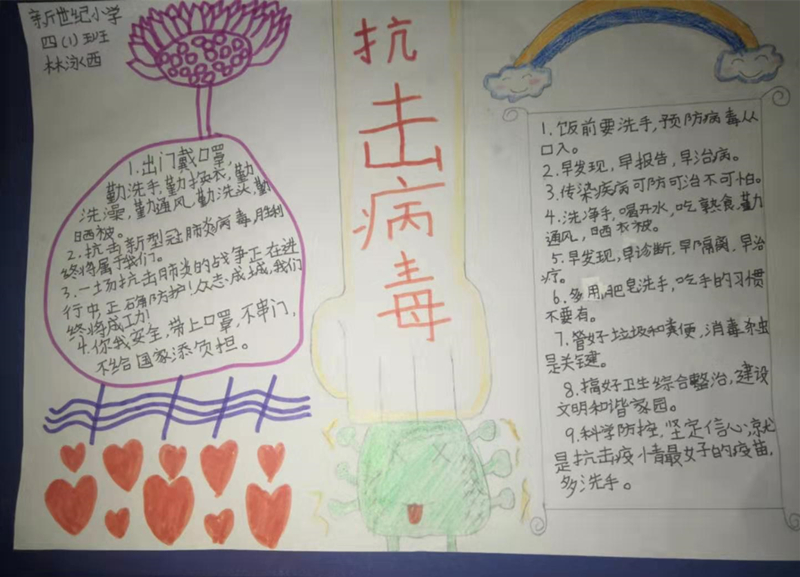 新世纪小学
四(1)班
林泳西
1.出门戴口罩,
勤洗手,勤换衣,勤
洗澡,勤通风,勤洗头,勤
晒被。
2.抗击新型冠肺炎病毒,胜利
终将属于我们。
3.一场抗击肺炎的战争正在进
行中,正确防护!众志成城,我们
终将成功!
4.你我安全,带上口罩,不串门,
不给国家添负担。
抗
击
病
毒
1.饭前要洗手,预防病毒从
口入。
2.早发现,早报告,早治病。
3.传染疾病可防可治不可怕。
4.洗净手,喝开水,吃熟食,勤
通风,晒衣被。
5.早发现,早诊断,早隔离,早治
疗。
6.多用肥皂洗手,吃手的习惯
不要有。
7.管好垃圾和粪便,消毒杀虫
是关键。
8.搞好卫生综合整治,建设
文明和谐家园。
9.科学防控,坚定信心,就
是抗击疫情最好的疫苗,
多洗手。